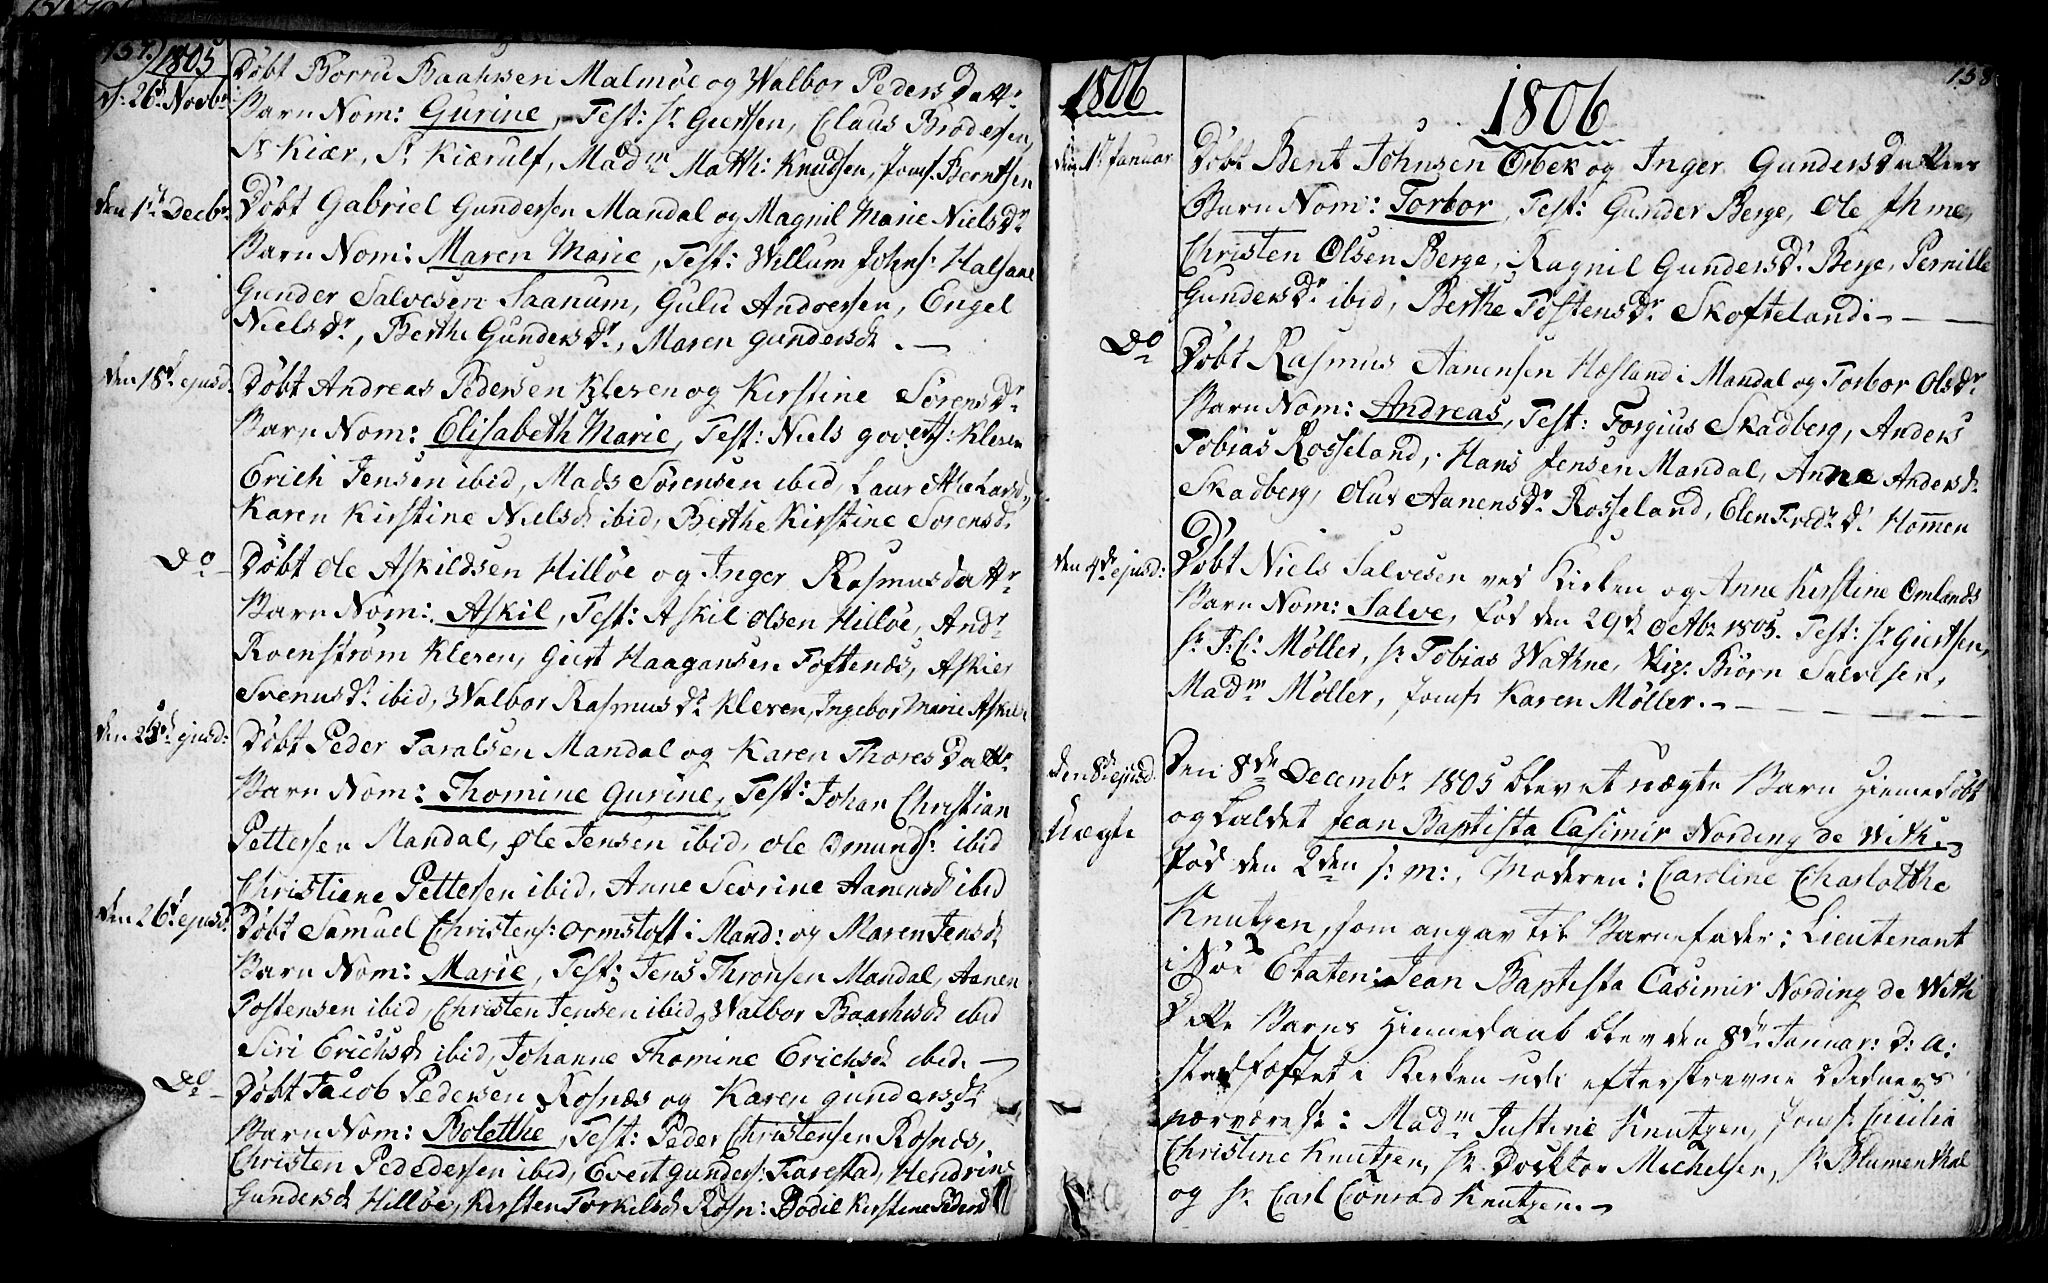 157. 1805
d: 26d Novbr Døbt Borru Baahrsen Malmøe og Walbor Pedersdattr
Barn Nom: Gurine, Test: Sr Geertsen, Claus Brodersen,
Sr Kiær, Sr Kiærulf, Madm Matth: Knudsen, Jomf. Berntsen
den 1ste Decbr: Døbt Gabriel Gundersen Mandal og Magnil Marie Nielsdr
Barn Nom: Maren Marie, Test: Willum Johns: Halsaae
Gunder Salvesen Saanum, Gulu Andersen, Engel
Nielsdr, Berthe Gundersdr, Maren Gundersd. —
den 18d ejusd. Døbt Andreas Pedersen Kleven og Kirstine Sørensdr
Barn Nom: Elisabeth Marie, Test: Niels Kleven
Erich Jensen ibid, Mads Sørensen ibid, Laurethe Larsd
Karen Kirstine Nielsd ibid, Berthe Kirstine Sørensd:
Do Døbt Ole Askildsen Hilløe og Inger Rasmusdattr
Barn Nom: Askil, Test: Askil Olsen Hilløe, Andr
Roenstrøm Kleven, Giert Haagansen Toftenæs, Askier
Svenusdr ibid, Walbor Rasmusdr Kleven, Ingebor Marie Askils
den 25d ejusd: Døbt Peder Taralsen Mandal og Karen Thoresdattr
Barn Nom: Thomine Gurine, Test: Johan Christian
Pettersen Mandal, Ole Jensen ibid, Ole Omunds: ibid
Christiene Pettersen ibid, Anne Sevrine Aanensd ibid
den 26d ejusd: Døbt Samuel Christens: Ormstoft i Mand: og Maren Jensd
Barn Nom: Marie, Test: Jens Thronsen Mandal, Aanen
Tostensen ibid, Christen Jensen ibid, Walbor Baarhusd ibid
Siri Erichsd ibid, Johanne Thomine Erichsd ibid. —
Do Døbt Jacob Pedersen Rosnæs og Karen Gundersdr
Barn Nom: Bolethe, Test: Peder Christensen Rosnes,
Christen Pededersen ibid, Evert Gunders: Farestad, Hendrine
Gundersd Hilløe, Kirsten Torkilsd Rosn: Bodil Kirstine Pedersd
158
1806
1806
den 1ste Januar Døbt Bent Johnsen Orbek og Inger Gundersdatters
Barn Nom: Torbor, Test: Gunder Berge, Ole Ihme,
Christen Olsen Berge, Ragnil Gundersdr Berge, Pernille
Gundersdr ibid, Berthe Tostensdr Skofteland. —
Do Døbt Rasmus Aanensen Hesland i Mandal og Torbor Olsdr
Barn Nom: Andreas, Test: Torgius Skadberg, Anders
Tobias Rosseland, Hans Jensen Mandal, Anne Andersd
Skadberg, Oluv Aanensdr Rosseland, Elen Fredr d: Hommen
den 4de ejusd: Døbt Niels Salvesen ved Kirken og Anne Kirstine Omlands
Barn Nom: Salve, fød den 29d Octbr 1805. Test: Sr Giertsen,
Sr J: C: Møller, Sr Tobias Wathne, Biørn Salvesen,
Madm Møller, Jomfr Karen Møller. —
den 8de ejusd. Uægte Den 8de Decembr 1805 blev et uægte Barn hiemedøbt
og kaldet Jean Baptista Casimir Nording de With.
fød den 2den s: m:, Moderen: Caroline Charlotthe
Knutzen, som angav til Barnefader: Lieutenant
i Søe Etaten: Jean Baptista Casimir Nording de With
Dette Barns Hiemedaab blev den 8de Januar: d: a:
stadfæstet i Kirken udi efterskrevne Vidners
nærværelse: Madm Justine Knutzen, Jomfr Cecilia
Christine Knutzen, Sr Docktor Michelsen, Sr Blumenthal
og Sr Carl Conrad Knutzen. —